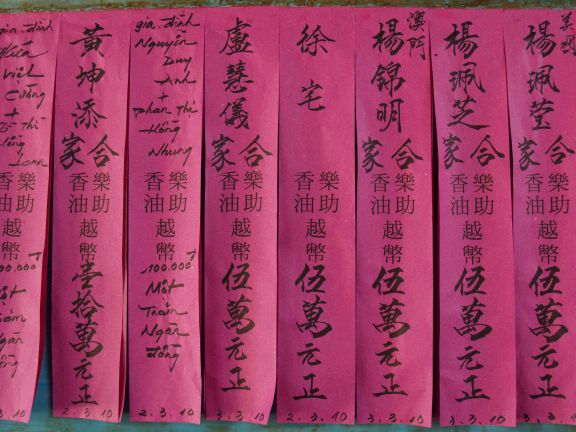 đình
Việt
Cường
+
Thị
香樂
油助
越幣
3.10
黃坤添
合家
樂助
香油
越幣
壹拾萬元正
2.3.10
gia đình
Nguyễn
Duy
Anh
+
Phan Thị
Hồng
Nhung
樂助
香油
越幣
100.000đ
Một
Trăm
Ngàn
đồng
2.3.10
盧慧儀
合家
樂助
香油
越幣
伍萬元正
3.3.10
徐宅
樂助
香油
越幣
伍萬元正
2.3.10
澳門
楊錦明
合家
樂助
香油
越幣
伍萬元正
3.3.10
楊珮芝
合家
樂助
香油
越幣
伍萬元正
3.3.10
美國
楊珮瑩
合家
樂助
香油
越幣
伍萬元正
3.3.10